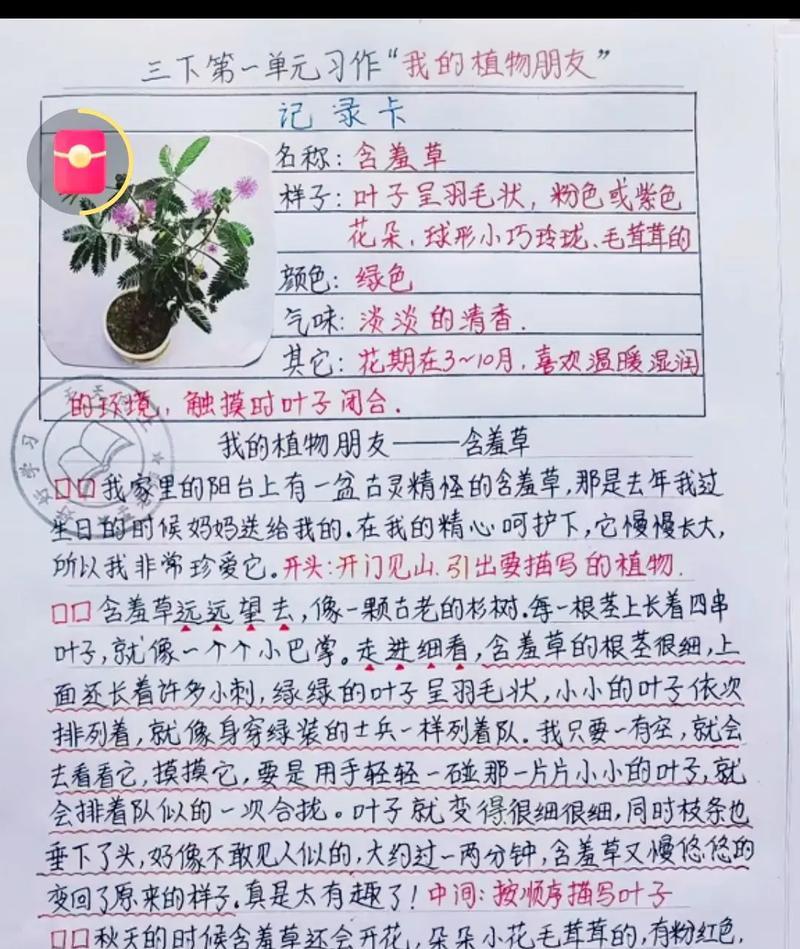 三下第一单元习作“我的植物朋友”
记录卡
名称：含羞草
样子：叶子呈羽毛状，粉色或紫色
花朵，球形小巧玲珑、毛茸茸的
颜色：绿色
气味：淡淡的清香.
其它：花期在3~10月，喜欢温暖湿润
的环境，触摸时叶子闭合.
我的植物朋友——含羞草
□□我家里的阳台上有一盆古灵精怪的含羞草，那是去年我过
生日的时候妈妈送给我的.在我的精心呵护下，它慢慢长大，
所以我非常珍爱它。开头：开门见山.引出要描写的植物.
□□含羞草远远望去，像一颗古老的杉树.每一根茎上长着四串
叶子，就像一个个小巴掌。走进细看，含羞草的根茎很细，上
面还长着许多小刺，绿绿的叶子呈羽毛状，小小的叶子依次
排列着，就像身穿绿装的士兵一样列着队.我只要一有空，就会
去看看它，摸摸它，要是用手轻轻一碰那一片片小小的叶子，就
会排着队似的一次合拢。叶子就变得很细很细，同时枝条也
垂下了头，好像不敢见人似的，大约过一两分钟，含羞草又慢悠悠的
变回了原来的样子.真是太有趣了！中间：按顺序描写叶子
□□秋天的时候含羞草还会开花，朵朵小花毛茸茸的，有粉红色，
学习